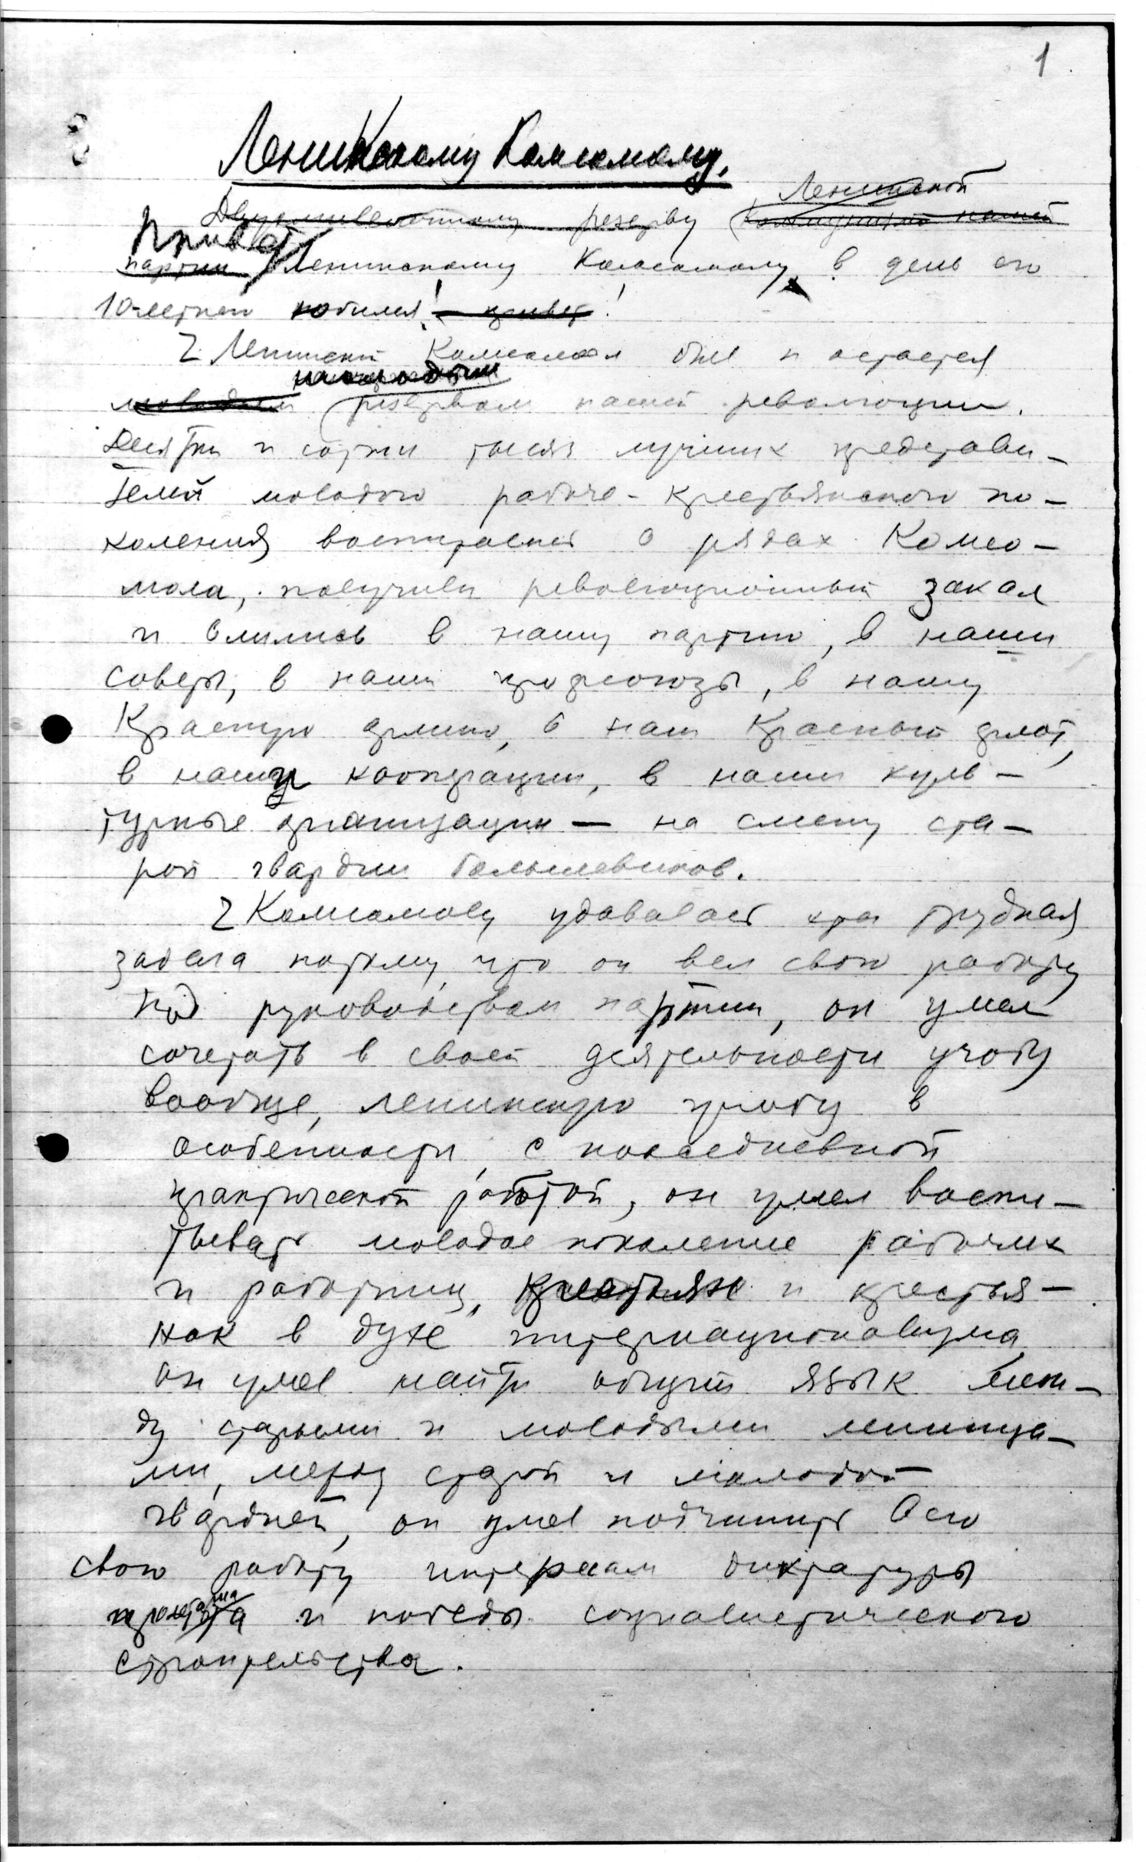 1
Ленинскому Комсомолу.
Ленинской
резерву нашей
Привет
партии Ленинскому Комсомолу в день его
10-летнего юбилея! – привет!
Ленинский Комсомол был и остается
молодым
молодым резервом нашей революции.
Десятки и сотни тысяч лучших представи-
телей молодого рабоче-крестьянского по-
коления воспитались в рядах Комсо-
мола, получили революционный закал
и влились в нашу партию, в наши
советы, в наши профсоюзы, в нашу
Красную армию, в наш Красный флот,
в нашу кооперацию, в наши куль-
турные организации – на смену ста-
рой гвардии большевиков.
Комсомолу удавалась эта трудная
задача потому, что он вел свою работу
под руководством партии, он умел
сочетать в своей деятельности учобу
вообще, ленинскую учобу в
особенности, с повседневной
практической работой, он умел воспи-
тывать молодое поколение рабочих
и работниц, крестьян и крестья-
нок в духе интернационализма,
он умел найти общий язык меж-
ду старыми и молодыми ленинца-
ми, между старой и молодой
гвардией, он умел подчинить всю
свою работу интересам диктатуры
пролета-та и победы социалистического
строительства.